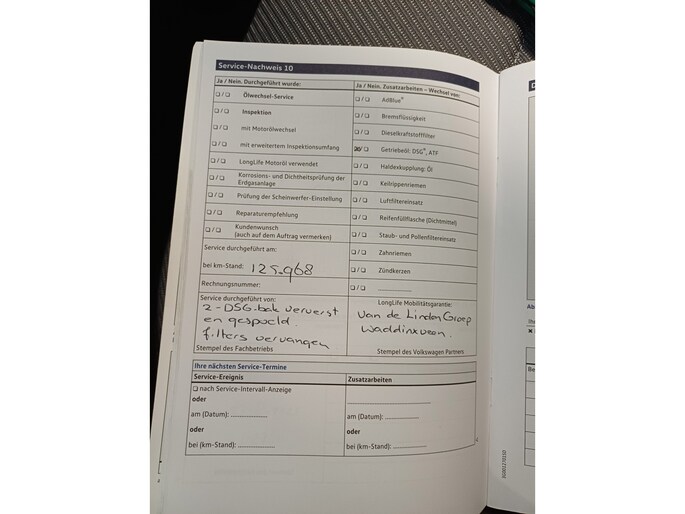 Service-Nachweis 10
Ja / Nein. Durchgeführt wurde:
Ja / Nein. Zusatzarbeiten – Wechsel von:
❑ / ❑ Ölwechsel-Service
❑ / ❑ AdBlue®
❑ / ❑ Inspektion
❑ / ❑ Bremsflüssigkeit
❑ / ❑ mit Motorölwechsel
❑ / ❑ Dieselkraftstofffilter
❑ / ❑ mit erweitertem Inspektionsumfang
❑ / ❑ Getriebeöl: DSG®, ATF
❑ / ❑ LongLife Motoröl verwendet
❑ / ❑ Haldexkupplung: Öl
❑ / ❑ Korrosions- und Dichtheitsprüfung der
Erdgasanlage
❑ / ❑ Keilrippenriemen
❑ / ❑ Prüfung der Scheinwerfer-Einstellung
❑ / ❑ Luftfiltereinsatz
❑ / ❑ Reparaturempfehlung
❑ / ❑ Reifenfüllflasche (Dichtmittel)
❑ / ❑ Kundenwunsch
(auch auf dem Auftrag vermerken)
❑ / ❑ Staub- und Pollenfiltereinsatz
Service durchgeführt am:
❑ / ❑ Zahnriemen
bei km-Stand: 125.968
❑ / ❑ Zündkerzen
Rechnungsnummer:
❑ / ❑
Service durchgeführt von:
2-DSG-bak ververst
en gespoeld.
filters vervangen
Stempel des Fachbetriebs
LongLife Mobilitätsgarantie:
Van de Linden Groep
Waddinxveen.
Stempel des Volkswagen Partners
Ihre nächsten Service-Termine
Service-Ereignis
Zusatzarbeiten
❑ nach Service-Intervall-Anzeige
oder
am (Datum):
am (Datum):
oder
oder
bei (km-Stand):
bei (km-Stand):